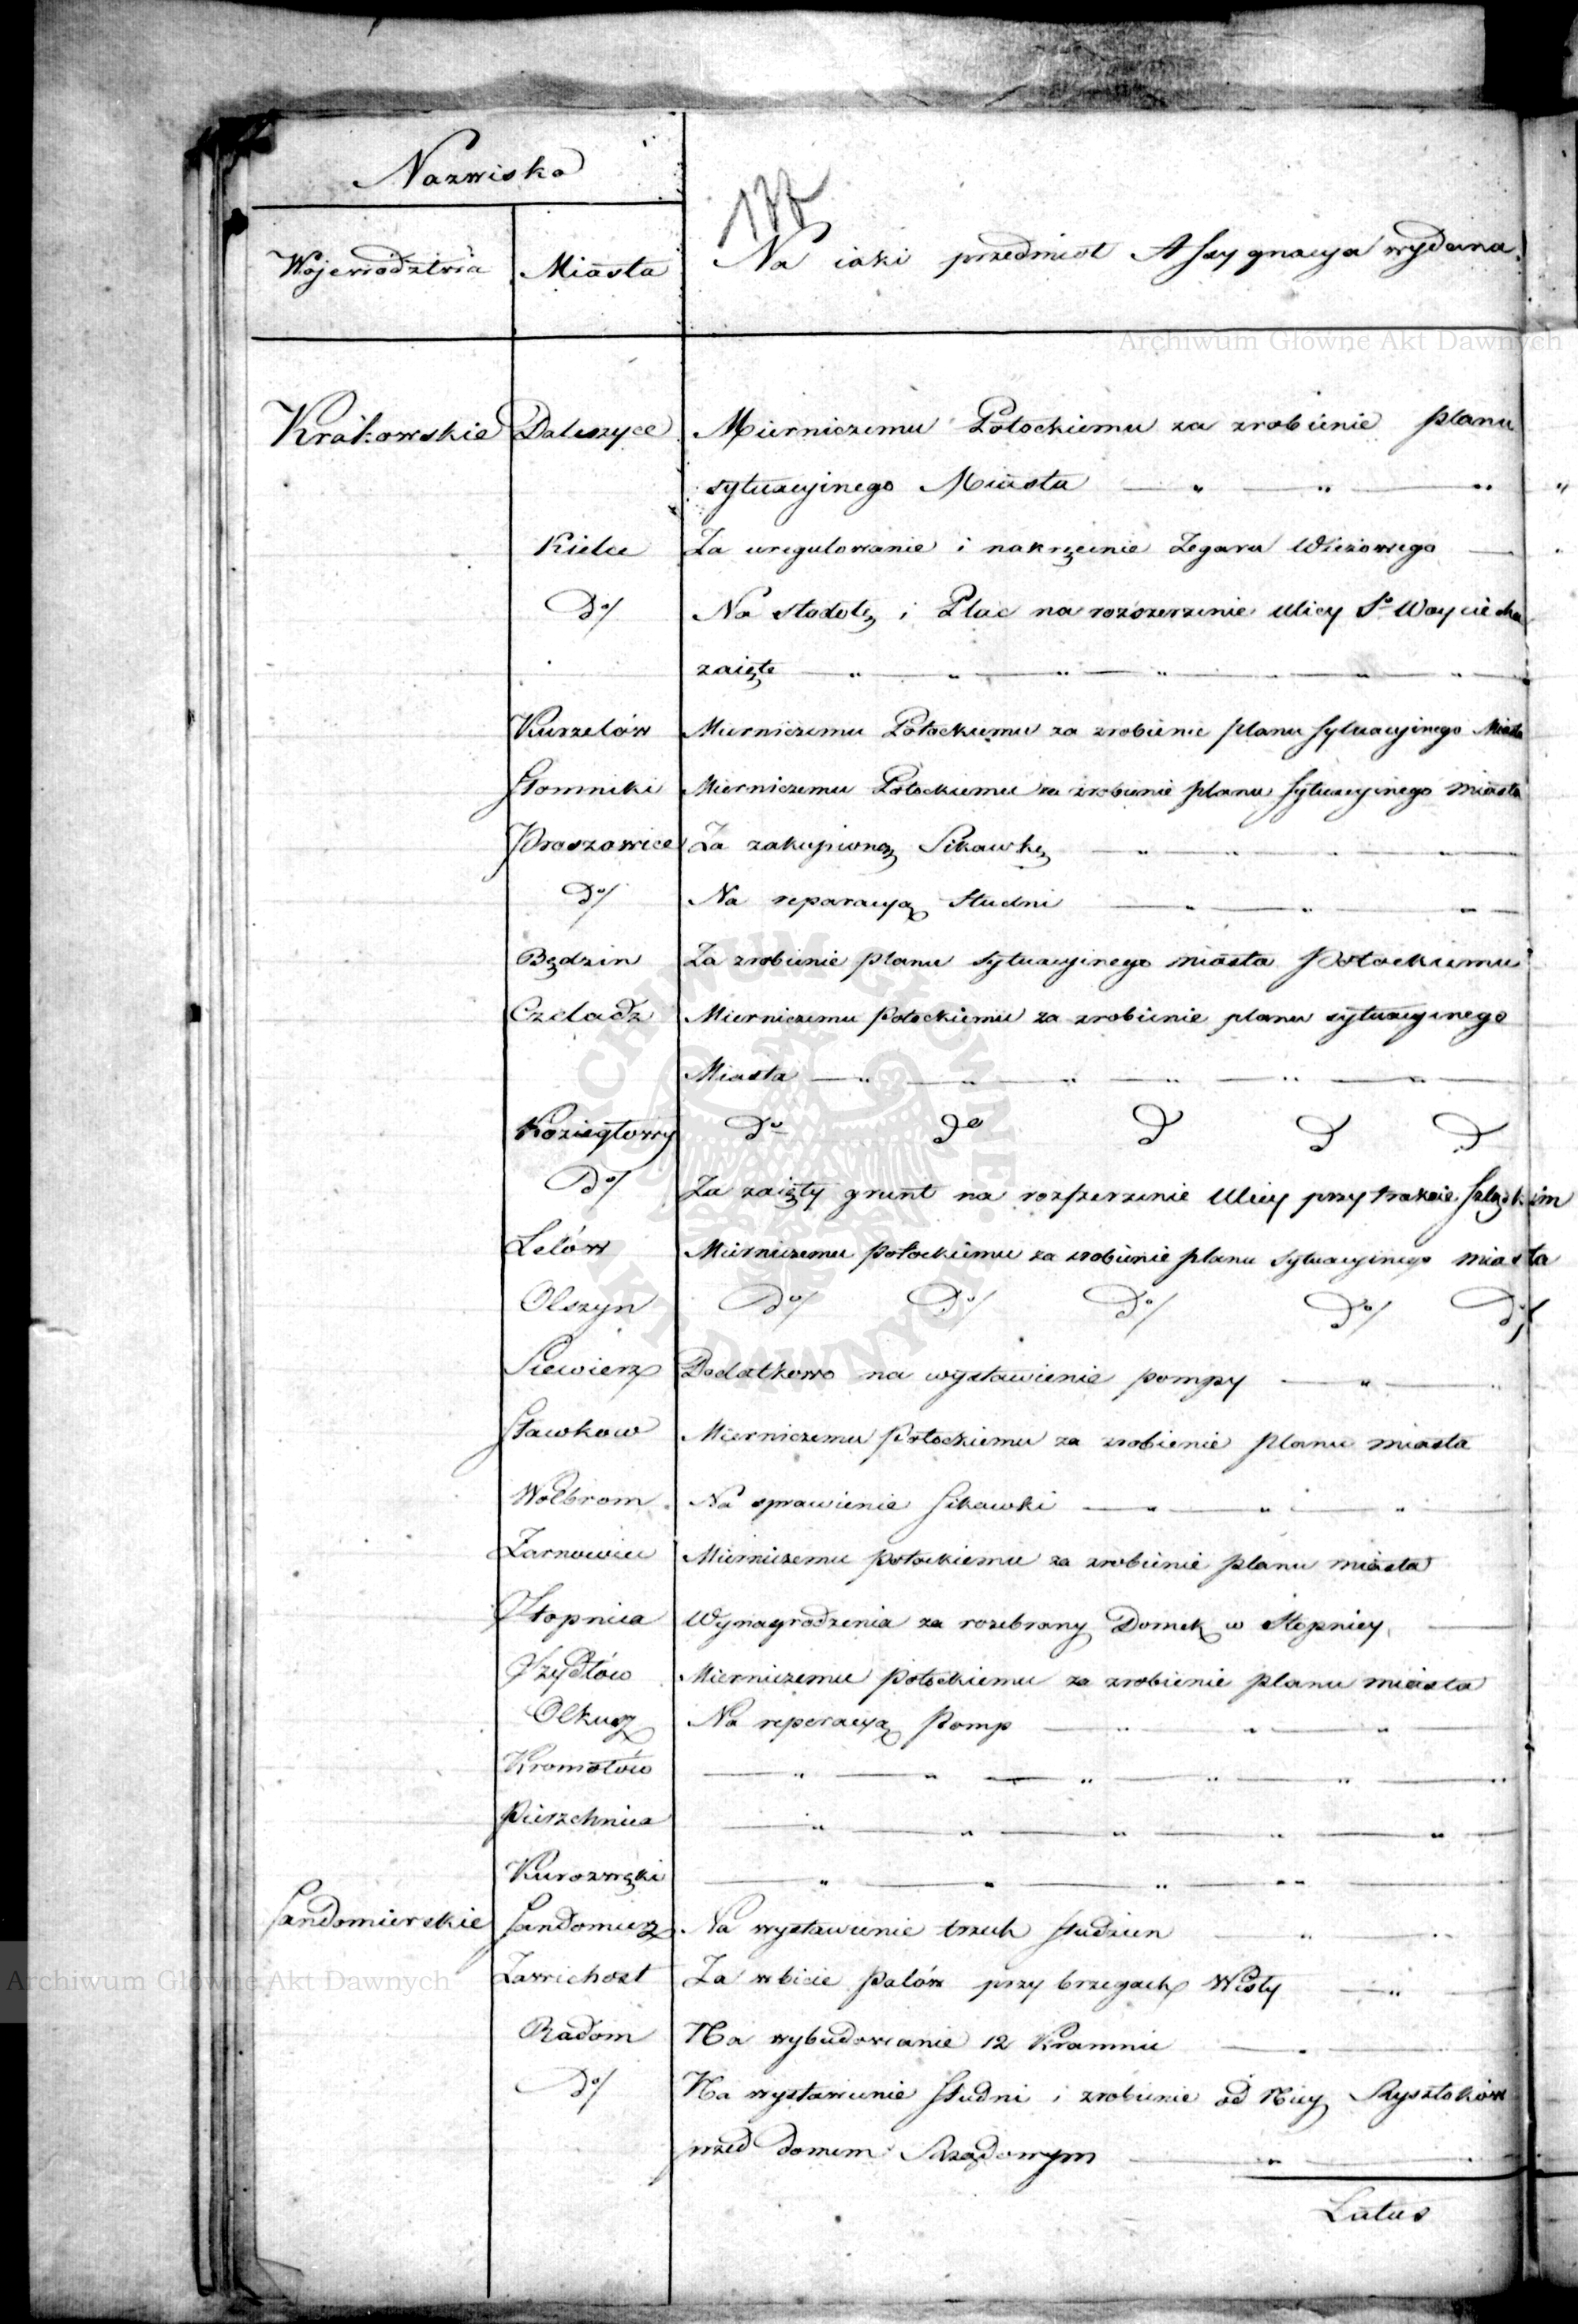 Nazwiska
Wojewodztwa Miasta Na iaki przedmiot Assygnacya wydana.
Archiwum Główne Akt Dawnych
Krakowskie Daleszyce Mierniczemu Potockiemu za zrobienie planu
sytuacyinego Miasta — „ — „ — „ „
Kielce Za uregulowanie i nakręcenie Zegaru Wieżowego —
do/ Na stodołę i Plac na rozszerzenie Ulicy So Woyciecha
zaięte — „ — „ — „ — „ — „ — „ — „
Kurzelów Mierniczemu Potockiemu za zrobienie planu sytuacyinego Miasta
Słomniki Mierniczemu Potockiemu za zrobienie planu sytuacyinego miasta
Proszowice Za zakupioną Sikawkę — „ — „ — „ — „
do/ Na reparacyą Studni — „ — „ — „
Będzin Za zrobienie planu sytuacyinego miasta Potockiemu
Czeladz Mierniczemu Potockiemu za zrobienie planu sytuacyinego
Miasta — „ — „ — „ — „ — „ — „
Koziegłowy do do d d d
do/ Za zaięty grunt na rozszerzenie Ulicy przy trakcie szląskim
Lelów Mierniczemu Potockiemu za zrobienie planu sytuacyinego miasta
Olszyn do/ do/ do/ do/ do/
Siewierz Dodatkowo na wystawienie pompy — „ — „
Sławkow Mierniczemu Potockiemu za zrobienie planu miasta
Wolbrom Na sprawienie sikawki — „ — „ — „
Zarnowiec Mierniczemu Potockiemu za zrobienie planu miasta
Stopnica Wynagrodzenia za rozebrany Domek w Stopnicy —
Szydłów Mierniczemu Potockiemu za zrobienie planu miasta
Olkusz Na reperacyą Pomp — „ — „ — „
Kromołów — „ — „ — „ — „ — „ — „
Pierzchnica — „ — „ — „ — „ — „
Kurozwęki — „ — „ — „ — „
Sandomierskie Sandomierz Na wystawienie trzech studzien — „ — „
Archiwum Główne Akt Dawnych
Zawichost Za wbicie palów przy brzegach Wisły — „
Radom Na wybudowanie 12 Kramnic — „
do/ Na wystawienie studni i zrobienie od niey Rysztoków
przed domem Rządowym — „
Latus